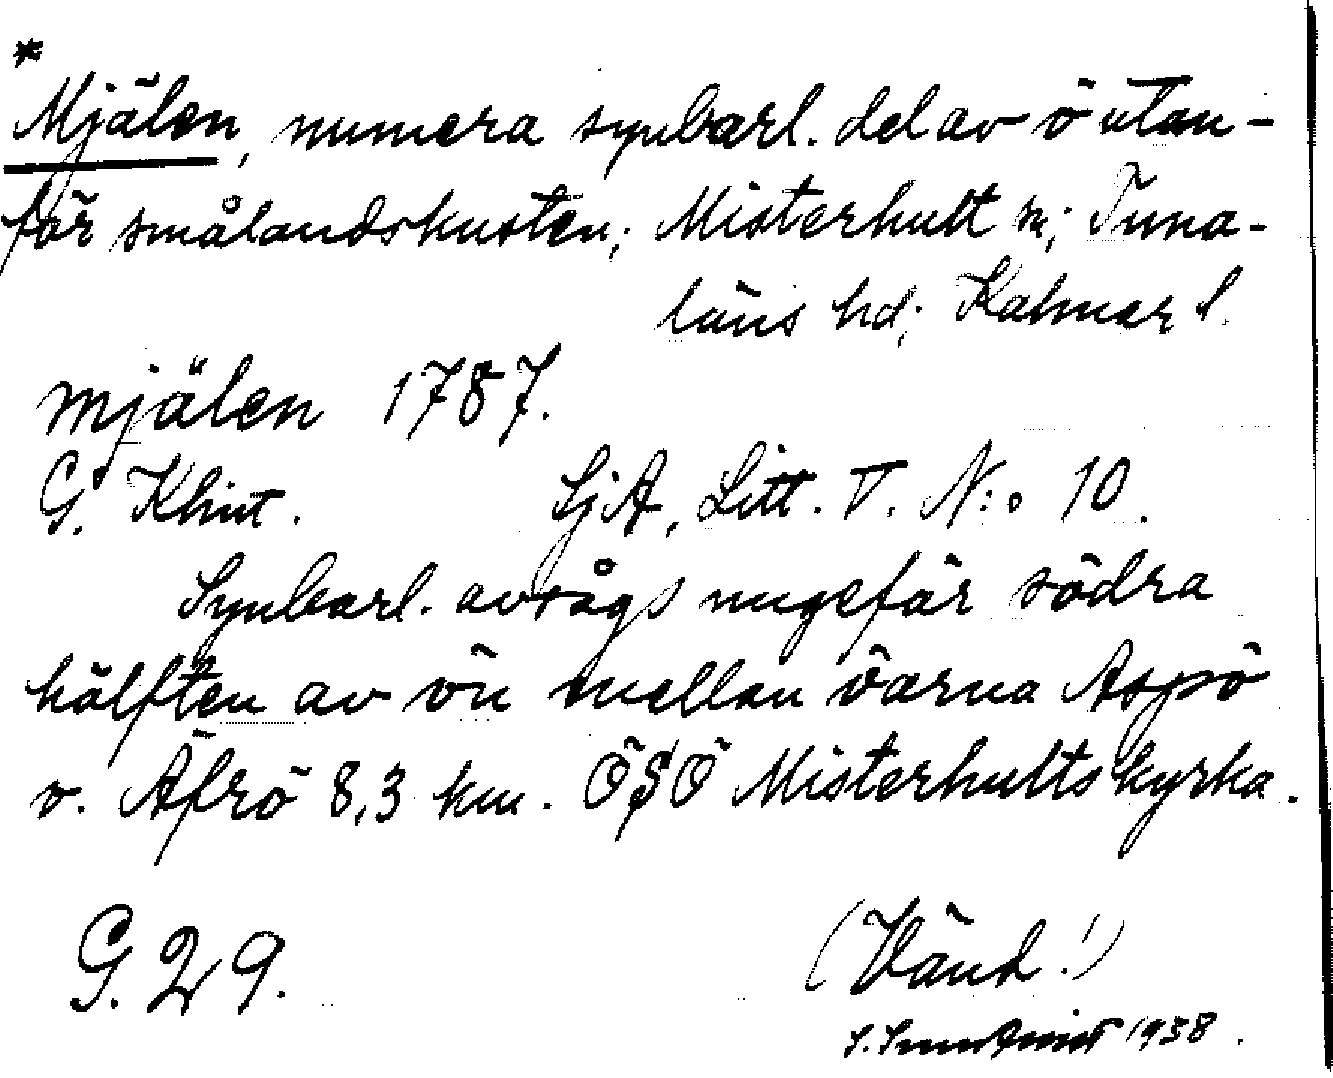 *
Mjälen, numera synbarl. del av ö utan-
för smålandskusten; Misterhult sn; Tuna-
läns hd; Kalmar l.
Mjälen 1787.
G. Klint. SjA, Litt. T. N:o 10.
Synbarl. avsågs ungefär södra
hälften av ön mellan öarna Aspö
o. Äfrö 8,3 km. ÖSÖ Misterhults kyrka.
G. 29. (Vänd!)
1938.